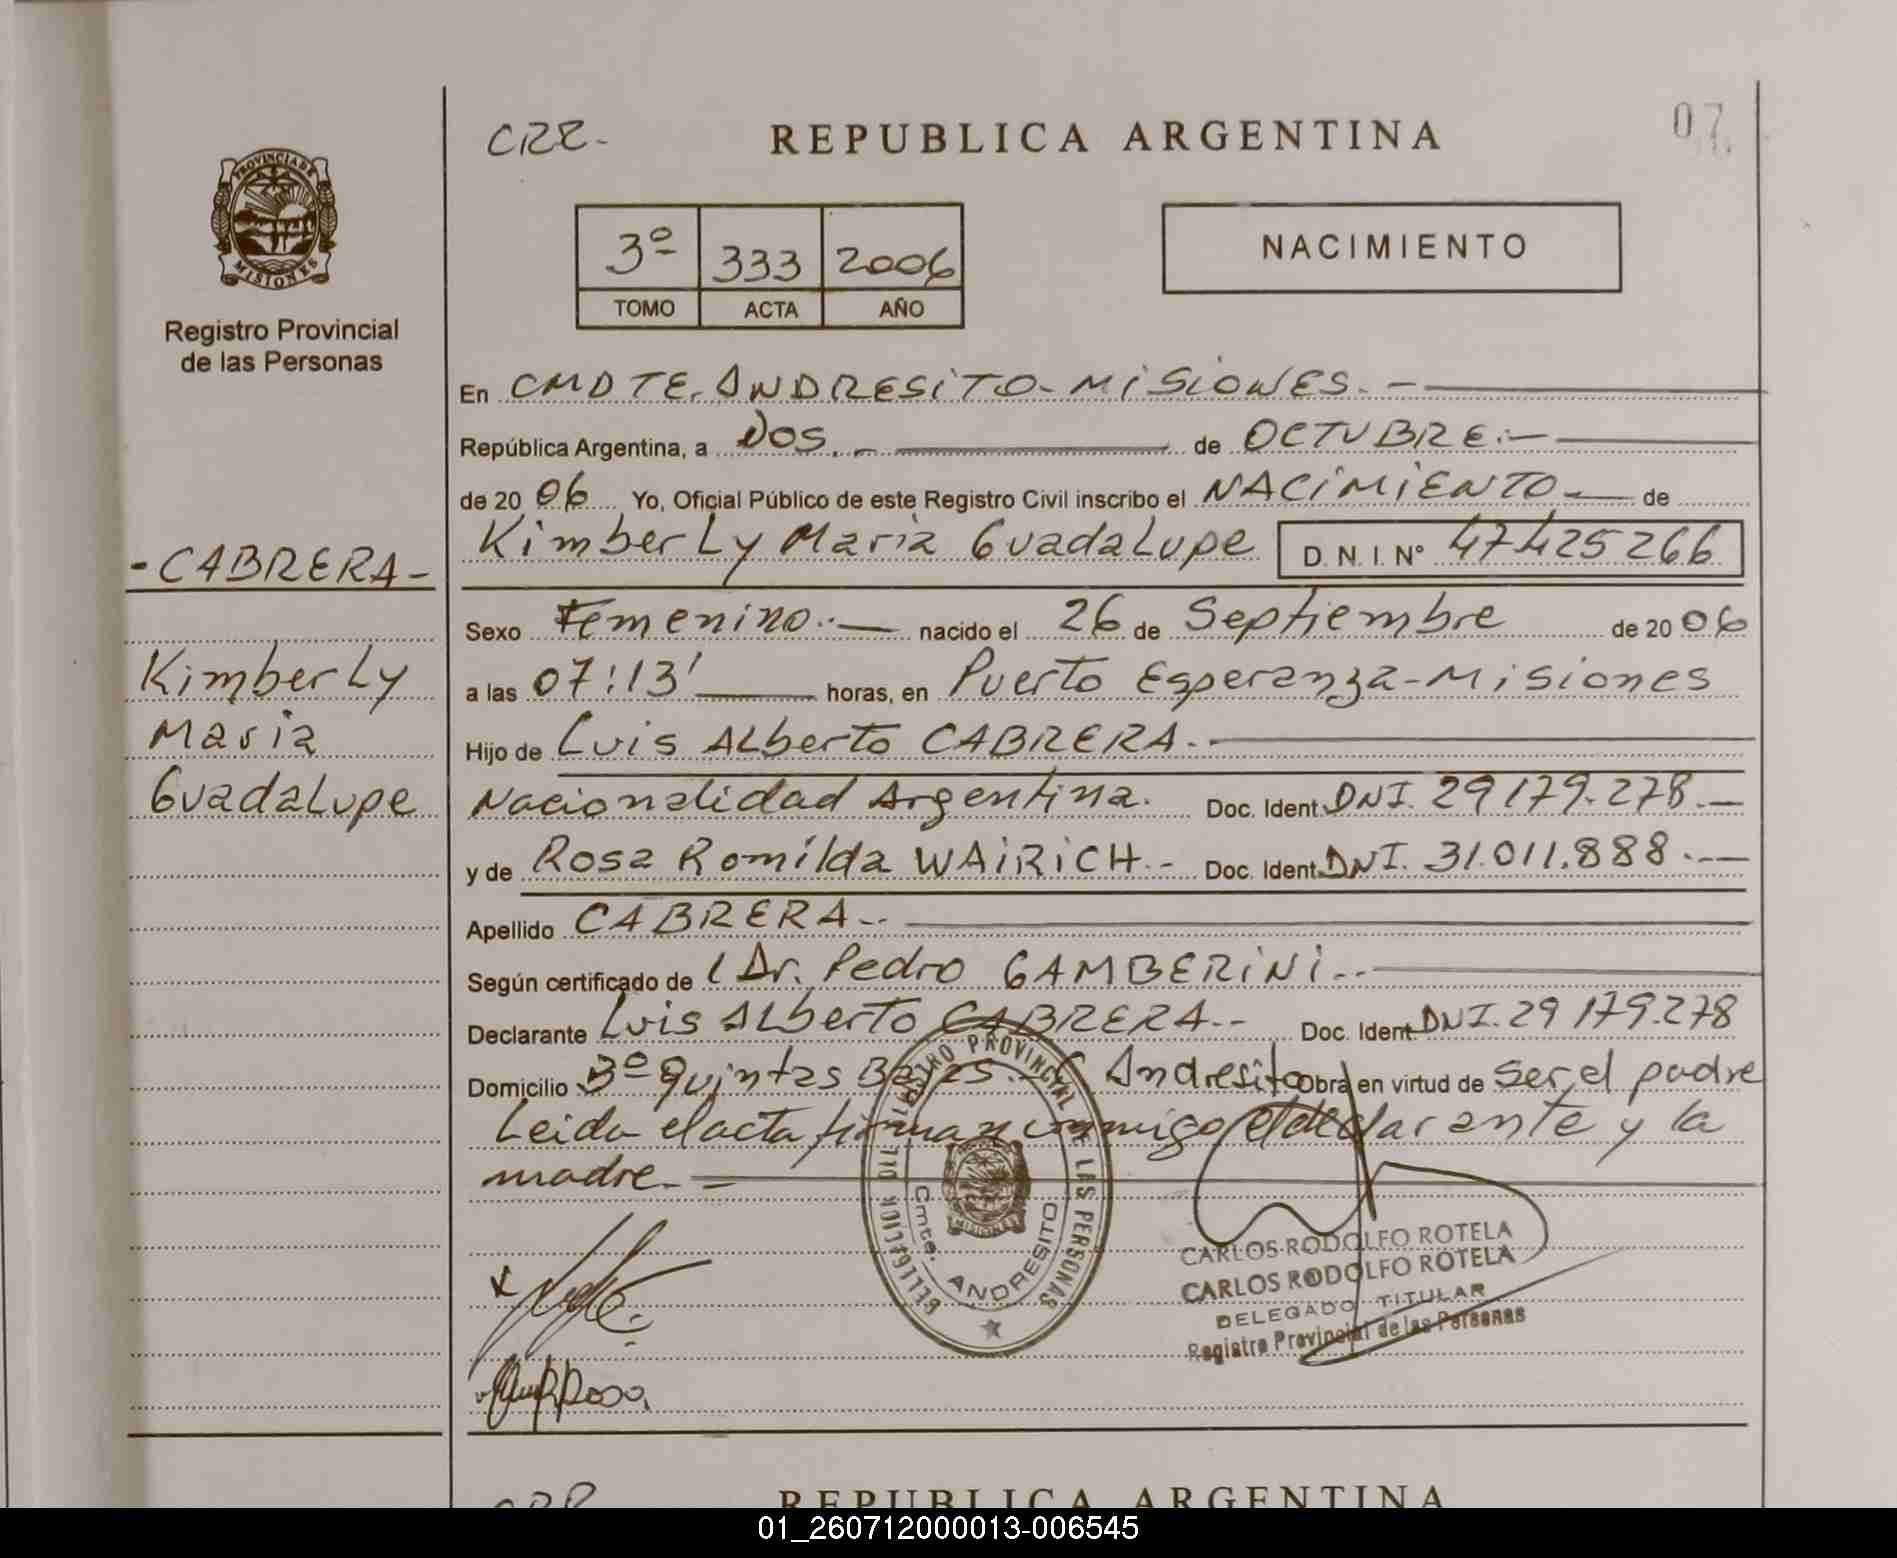 CRR-
REPUBLICA ARGENTINA
07
PROVINCIA DE
MISIONES
Registro Provincial
de las Personas
3º 333 2006
TOMO ACTA AÑO
NACIMIENTO
En CMDTE. ANDRESITO - MISIONES. -
República Argentina, a Dos. - de OCTUBRE. -
de 20 06 Yo, Oficial Público de este Registro Civil inscribo el NACIMIENTO - de
Kimberly Maria Guadalupe D. N. I. Nº 47.425266
- CABRERA -
Kimberly
Maria
Guadalupe
Sexo Femenino. - nacido el 26 de Septiembre de 20 06
a las 07:13' horas, en Puerto Esperanza - Misiones
Hijo de Luis Alberto CABRERA. -
Nacionalidad Argentina. Doc. Ident. DNI. 29 179.278. -
y de Rosa Romilda WAIRICH. - Doc. Ident. DNI. 31.011.888. -
Apellido CABRERA. -
Según certificado de Dr. Pedro GAMBERINI. -
Declarante Luis Alberto CABRERA. - Doc. Ident. DNI. 29 179.278
Domicilio 3º Quintas Andresito Obra en virtud de ser el padre
Leida el acta firman conmigo el declarante y la
madre. -
REGISTRO PROVINCIAL DE LAS PERSONAS
Cmte. ANDRESITO
MISIONES
CARLOS RODOLFO ROTELA
CARLOS RODOLFO ROTELA
DELEGADO TITULAR
Registro Provincial de las Personas
Rosa
REPUBLICA ARGENTINA
01_260712000013-006545